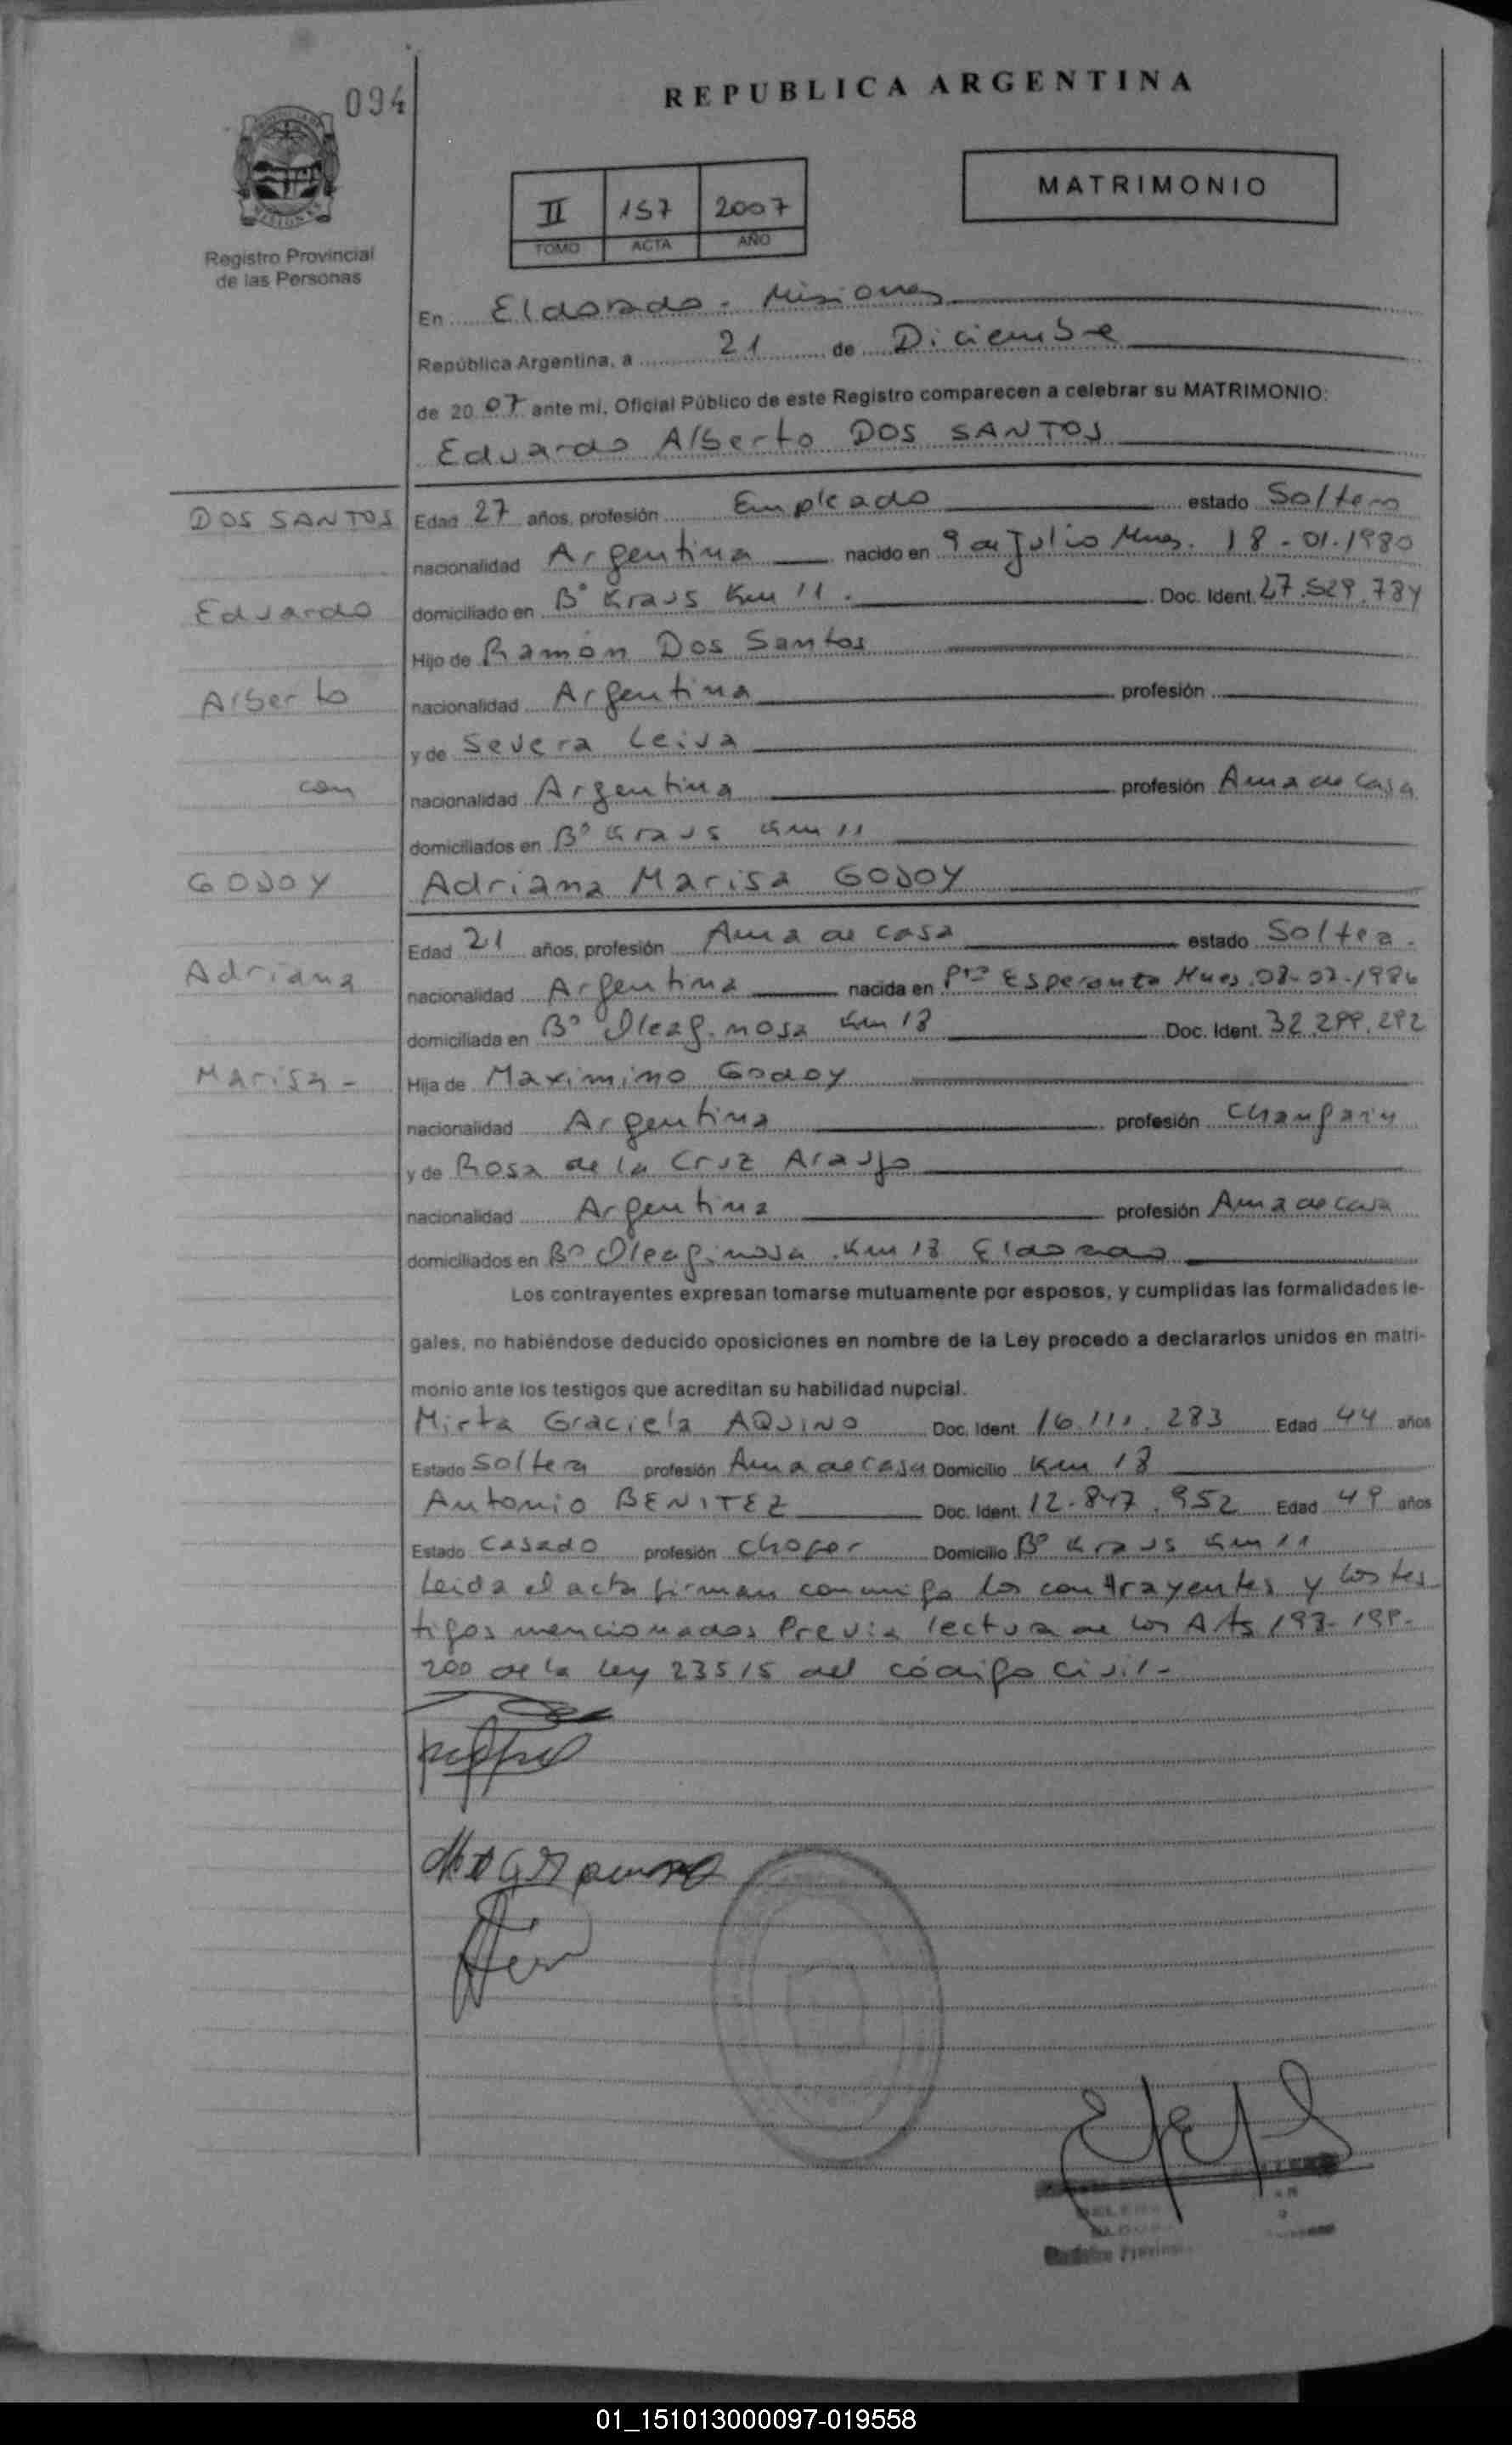 094
REPUBLICA ARGENTINA
MATRIMONIO
II 157 2007
TOMO ACTA AÑO
Registro Provincial
de las Personas
En Eldorado - Misiones
República Argentina, a 21 de Diciembre
de 2007 ante mi, Oficial Público de este Registro comparecen a celebrar su MATRIMONIO:
Eduardo Alberto DOS SANTOS
DOS SANTOS
Eduardo
Alberto
con
GODOY
Adriana
Marisa -
Edad 27 años, profesión Empleado estado Soltero
nacionalidad Argentina nacido en 9 de Julio Mnes. 18-01-1980
domiciliado en B° Kraus Km 11. Doc. Ident. 27.529.784
Hijo de Ramón Dos Santos
nacionalidad Argentina profesión
y de Severa Leiva
nacionalidad Argentina profesión Ama de Casa
domiciliados en B° Kraus Km 11
Adriana Marisa GODOY
Edad 21 años, profesión Ama de casa estado Soltera.
nacionalidad Argentina nacida en Pto Esperanza Mnes. 1986
domiciliada en B° Oleaginosa Km 18 Doc. Ident. 32.299.292
Hija de Maximino Godoy
nacionalidad Argentina profesión
y de Rosa de la Cruz Araujo
nacionalidad Argentina profesión Ama de casa
domiciliados en B° Oleaginosa Km 18 Eldorado
Los contrayentes expresan tomarse mutuamente por esposos, y cumplidas las formalidades le-
gales, no habiéndose deducido oposiciones en nombre de la Ley procedo a declararlos unidos en matri-
monio ante los testigos que acreditan su habilidad nupcial.
Mirta Graciela AQUINO Doc. Ident. 16.111.283 Edad 44 años
Estado Soltera profesión Ama de casa Domicilio Km 18
Antonio BENITEZ Doc. Ident. 12.847.952 Edad 49 años
Estado Casado profesión Chofer Domicilio B° Kraus Km 11
Leida el acta firman conmigo los contrayentes y los tes
tigos mencionados Previa lectura de los Arts 198-199-
200 de la Ley 23515 del código civil-
01_151013000097-019558